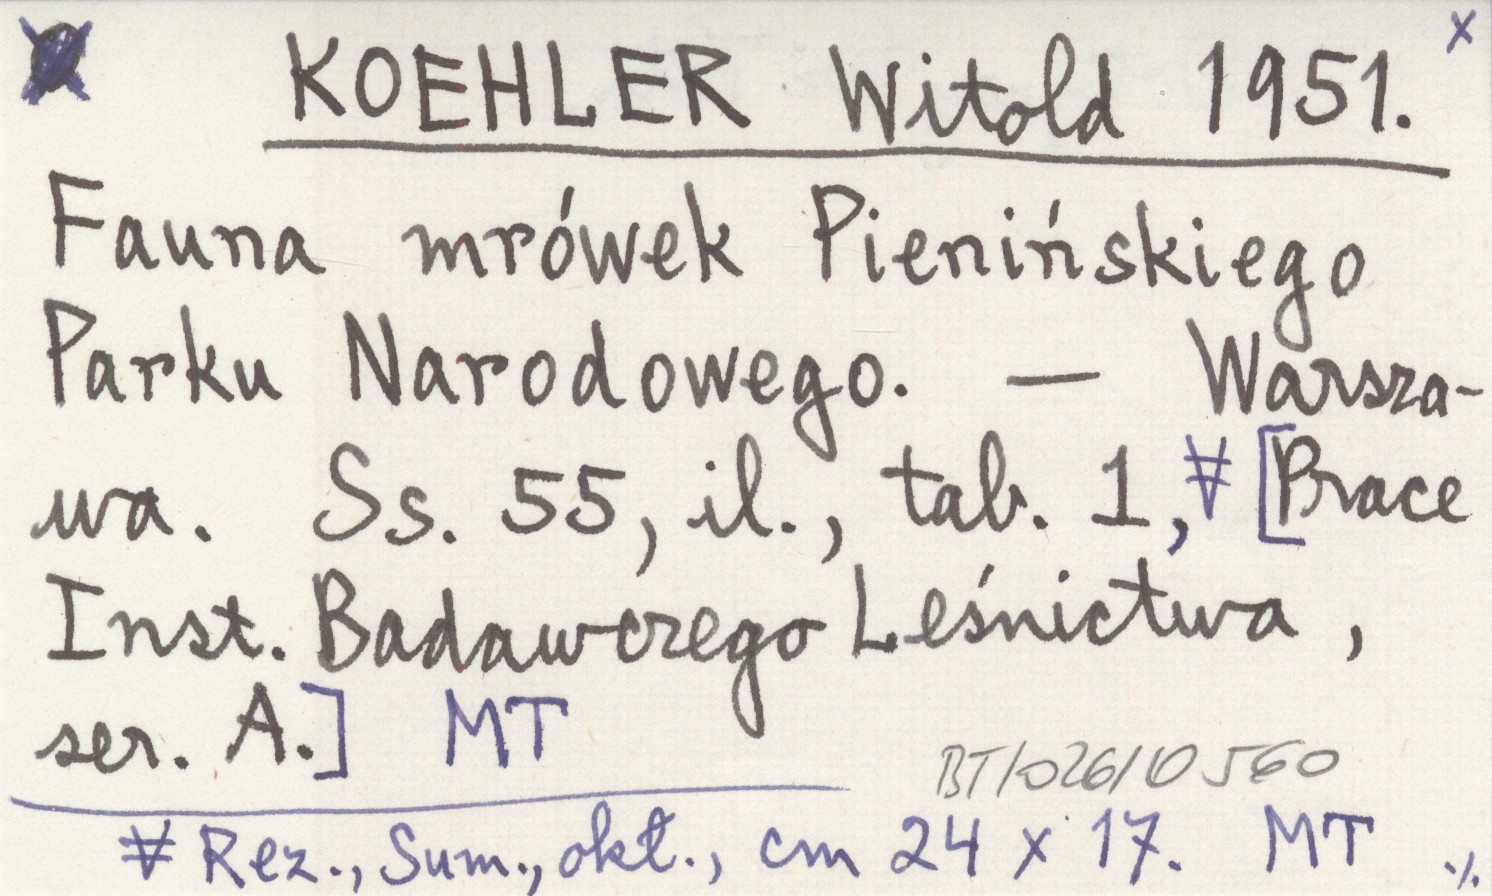 x
KOEHLER Witold 1951.
Fauna mrówek Pienińskiego
Parku Narodowego. — Warsza-
wa. Ss. 55, il., tab. 1, ∀ [Prace
Inst. Badawczego Leśnictwa,
ser. A.] MT
BT/026/10560
∀ Rez., Sum., okł., cm 24 x 17. MT ./.